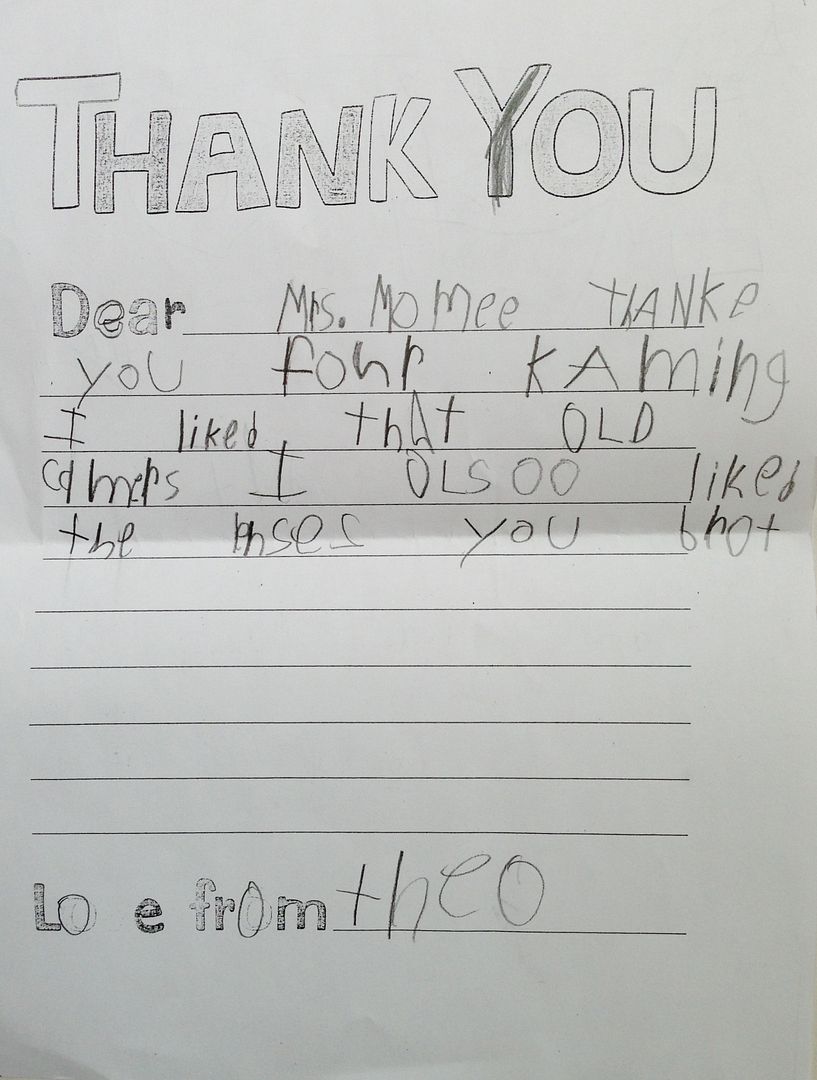 THANK YOU
Dear Mrs. Momee THANKe
you fohr KAming
I liked that OLD
camers I OLSOO liked
the lenses you bhot
Lo e from theo